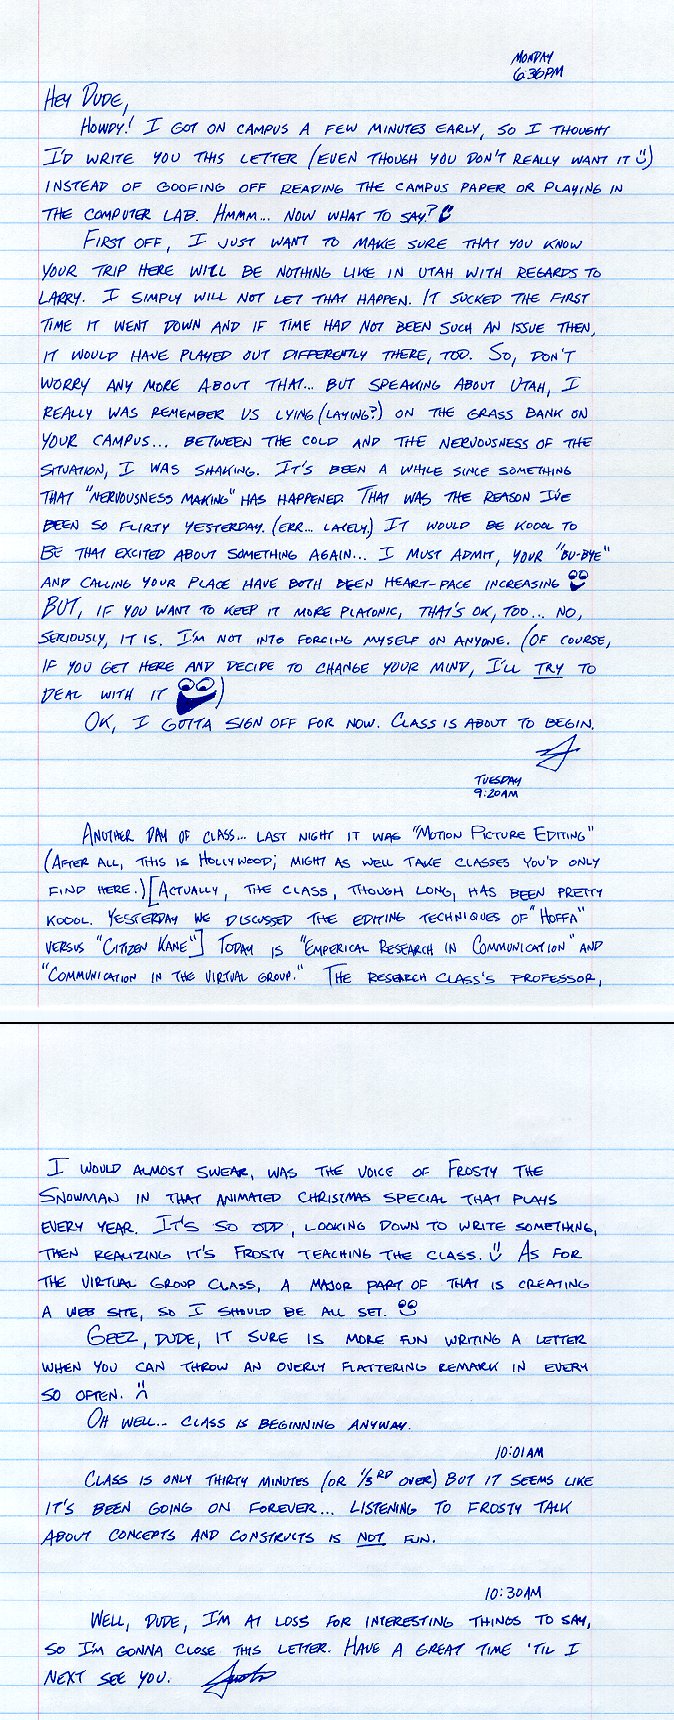 MONDAY
6:36PM
HEY DUDE,
HOWDY! I GOT ON CAMPUS A FEW MINUTES EARLY, SO I THOUGHT
I'D WRITE YOU THIS LETTER (EVEN THOUGH YOU DON'T REALLY WANT IT)
INSTEAD OF GOOFING OFF READING THE CAMPUS PAPER OR PLAYING IN
THE COMPUTER LAB. HMMM... NOW WHAT TO SAY?
FIRST OFF, I JUST WANT TO MAKE SURE THAT YOU KNOW
YOUR TRIP HERE WILL BE NOTHING LIKE IN UTAH WITH REGARDS TO
LARRY. I SIMPLY WILL NOT LET THAT HAPPEN. IT SUCKED THE FIRST
TIME IT WENT DOWN AND IF TIME HAD NOT BEEN SUCH AN ISSUE THEN,
IT WOULD HAVE PLAYED OUT DIFFERENTLY THERE, TOO. SO, DON'T
WORRY ANY MORE ABOUT THAT... BUT SPEAKING ABOUT UTAH, I
REALLY WAS REMEMBER US LYING (LAYING?) ON THE GRASS BANK ON
YOUR CAMPUS... BETWEEN THE COLD AND THE NERVOUSNESS OF THE
SITUATION, I WAS SHAKING. IT'S BEEN A WHILE SINCE SOMETHING
THAT "NERVOUSNESS MAKING" HAS HAPPENED. THAT WAS THE REASON I'VE
BEEN SO FLIRTY YESTERDAY. (ERR... LATELY) IT WOULD BE KOOOL TO
BE THAT EXCITED ABOUT SOMETHING AGAIN... I MUST ADMIT, YOUR "BU-BYE"
AND CALLING YOUR PLACE HAVE BOTH BEEN HEART-PACE INCREASING
BUT, IF YOU WANT TO KEEP IT MORE PLATONIC, THAT'S OK, TOO... NO,
SERIOUSLY, IT IS. I'M NOT INTO FORCING MYSELF ON ANYONE. (OF COURSE,
IF YOU GET HERE AND DECIDE TO CHANGE YOUR MIND, I'LL TRY TO
DEAL WITH IT )
OK, I GOTTA SIGN OFF FOR NOW. CLASS IS ABOUT TO BEGIN.
TUESDAY
9:20AM
ANOTHER DAY OF CLASS... LAST NIGHT IT WAS "MOTION PICTURE EDITING"
(AFTER ALL, THIS IS HOLLYWOOD; MIGHT AS WELL TAKE CLASSES YOU'D ONLY
FIND HERE.) [ACTUALLY, THE CLASS, THOUGH LONG, HAS BEEN PRETTY
KOOOL. YESTERDAY WE DISCUSSED THE EDITING TECHNIQUES OF "HOFFA"
VERSUS "CITIZEN KANE"] TODAY IS "EMPERICAL RESEARCH IN COMMUNICATION" AND
"COMMUNICATION IN THE VIRTUAL GROUP." THE RESEARCH CLASS'S PROFESSOR,
I WOULD ALMOST SWEAR, WAS THE VOICE OF FROSTY THE
SNOWMAN IN THAT ANIMATED CHRISTMAS SPECIAL THAT PLAYS
EVERY YEAR. IT'S SO ODD, LOOKING DOWN TO WRITE SOMETHING,
THEN REALIZING IT'S FROSTY TEACHING THE CLASS. AS FOR
THE VIRTUAL GROUP CLASS, A MAJOR PART OF THAT IS CREATING
A WEB SITE, SO I SHOULD BE ALL SET.
GEEZ, DUDE, IT SURE IS MORE FUN WRITING A LETTER
WHEN YOU CAN THROW AN OVERLY FLATTERING REMARK IN EVERY
SO OFTEN.
OH WELL... CLASS IS BEGINNING ANYWAY.
10:01AM
CLASS IS ONLY THIRTY MINUTES (OR 1/3RD OVER) BUT IT SEEMS LIKE
IT'S BEEN GOING ON FOREVER... LISTENING TO FROSTY TALK
ABOUT CONCEPTS AND CONSTRUCTS IS NOT FUN.
10:30AM
WELL, DUDE, I'M AT LOSS FOR INTERESTING THINGS TO SAY,
SO I'M GONNA CLOSE THIS LETTER. HAVE A GREAT TIME 'TIL I
NEXT SEE YOU.